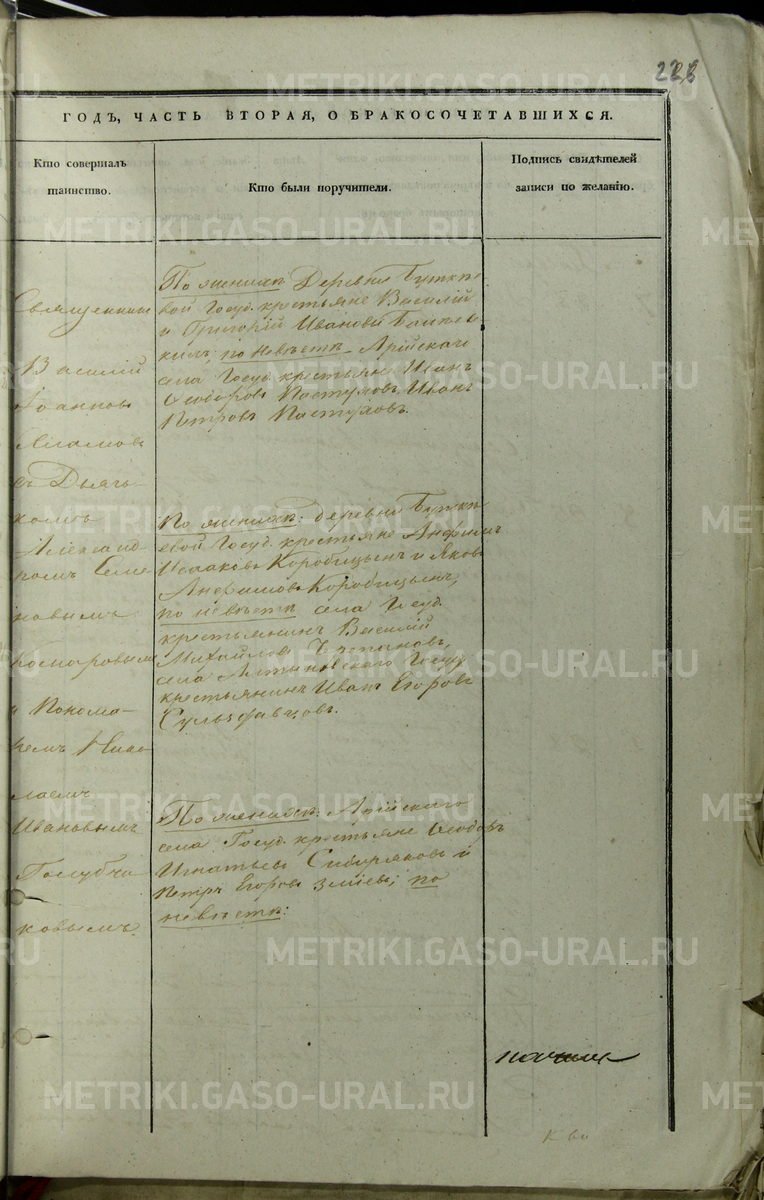 228
ГОДЪ, ЧАСТЬ ВТОРАЯ, О БРАКОСОЧЕТАВШИХСЯ.
Кто совершалъ
таинство.
Кто были поручители.
Подпись свидѣтелей
записи по желанію.
Священникъ
Василій
Іоанновъ
съ Дьяч-
комъ
Александ-
ромъ Семе-
новымъ
Комаровымъ
и Понома-
ремъ Нико-
лаемъ
Ивановымъ
Голубчи-
ковымъ
По женихѣ Деревни
вой Госуд. крестьяне Василій
и Григорій Ивановы
по невѣстѣ Арійскаго
села Госуд. крестьяне Иванъ
Ѳеодоровъ Пастуховъ, Иванъ
Петровъ Пастуховъ.
По женихѣ: деревни
евой Госуд. крестьяне Анфимъ
Исааковъ Коробицынъ и Яковъ
Анфимовъ Коробицынъ,
по невѣстѣ села Госуд.
крестьянинъ Василій
Михайловъ
села Алтыновскаго Госуд.
крестьянинъ Иванъ Егоровъ
По женихѣ: Арійскаго
села Госуд. крестьяне Ѳеодоръ
Игнатьевъ Сибиряковъ и
Петръ Егоровъ Змѣевъ; по
невѣстѣ:
METRIKI.GASO-URAL.RU